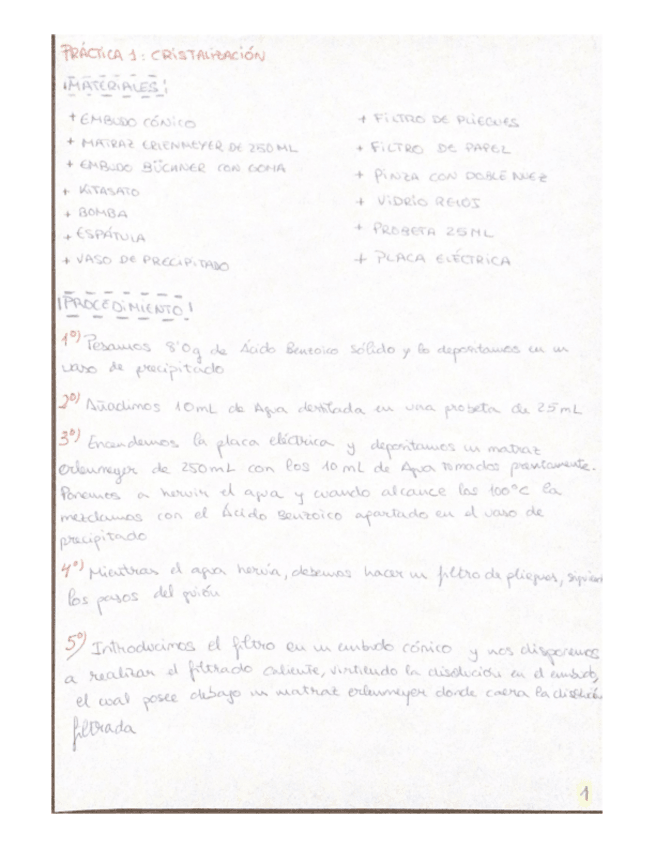 PRÁCTICA 1: CRISTALIZACIÓN
MATERIALES
+ EMBUDO CÓNICO
+ MATRAZ ERLENMEYER DE 250ML
+ EMBUDO BÜCHNER CON GOMA
+ KITASATO
+ BOMBA
+ ESPÁTULA
+ VASO DE PRECIPITADO
+ FILTRO DE PLIEGUES
+ FILTRO DE PAPEL
+ PINZA CON DOBLE NUEZ
+ VIDRIO RELOJ
+ PROBETA 25ML
+ PLACA ELÉCTRICA
PROCEDIMIENTO
1º) Pesamos 8'0g de Ácido Benzoico sólido y lo depositamos en un
vaso de precipitado
2º) Añadimos 10mL de Agua destilada en una probeta de 25mL
3º) Encendemos la placa eléctrica y depositamos un matraz
erlenmeyer de 250mL con los 10mL de Agua tomados previamente.
Ponemos a hervir el agua y cuando alcance los 100°C la
mezclamos con el Ácido Benzoico apartado en el vaso de
precipitado
4º) Mientras el agua hervía, debemos hacer un filtro de pliegues,
los pasos del guión
5º) Introducimos el filtro en un embudo cónico y nos disponemos
a realizar el filtrado caliente, virtiendo la disolución en el embudo,
el cual posee debajo un matraz erlenmeyer donde caera la
filtrada
1